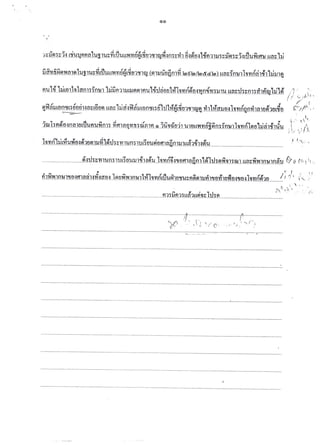 ๑๑
ระมัดระวัง เช่นบุคคลในฐานะที่เป็นแพทย์ผู้เชี่ยวชาญพึงกระทำ ยิ่งต้องใช้ความระมัดระวังเป็นพิเศษ และไม่
มีสิทธิผิดพลาดในฐานะที่เป็นแพทย์ผู้เชี่ยวชาญ และรักษาโจทก์ล่าช้าไม่มาดู
คนไข้ ไม่เอาใจใส่การรักษา ไม่มีความเมตตาคนไข้ปล่อยให้โจทก์ต้องทุกข์ทรมาน และประการสำคัญไม่ได้
ดูฟิล์มเอกซเรย์อย่างละเอียด และไม่ส่งฟิล์มเอกซเรย์ไปให้ผู้เชี่ยวชาญดู ทำให้สมองโจทก์ถูกทำลายด้วยเชื้อ
วัณโรคต้องกลายเป็นคนพิการ ที่ศาลอุทธรณ์ภาค ๑ วินิจฉัยว่า นายแพทย์ผู้ตรวจรักษาโจทก์โดยไม่ล่าช้านั้น
โจทก์ไม่เห็นพ้องด้วยตามที่ได้ประทานกราบเรียนต่อศาลฎีกามาแล้วข้างต้น
ดังประทานกราบเรียนมาข้างต้น โจทก์จึงขอศาลฎีกาได้โปรดพิจารณา และพิพากษากลับ
คำพิพากษาของศาลล่างทั้งสอง โดยพิพากษาให้โจทก์เป็นฝ่ายชนะคดีตามคำขอท้ายฟ้องของโจทก์ด้วย
ควรมิควรแล้วแต่จะโปรด